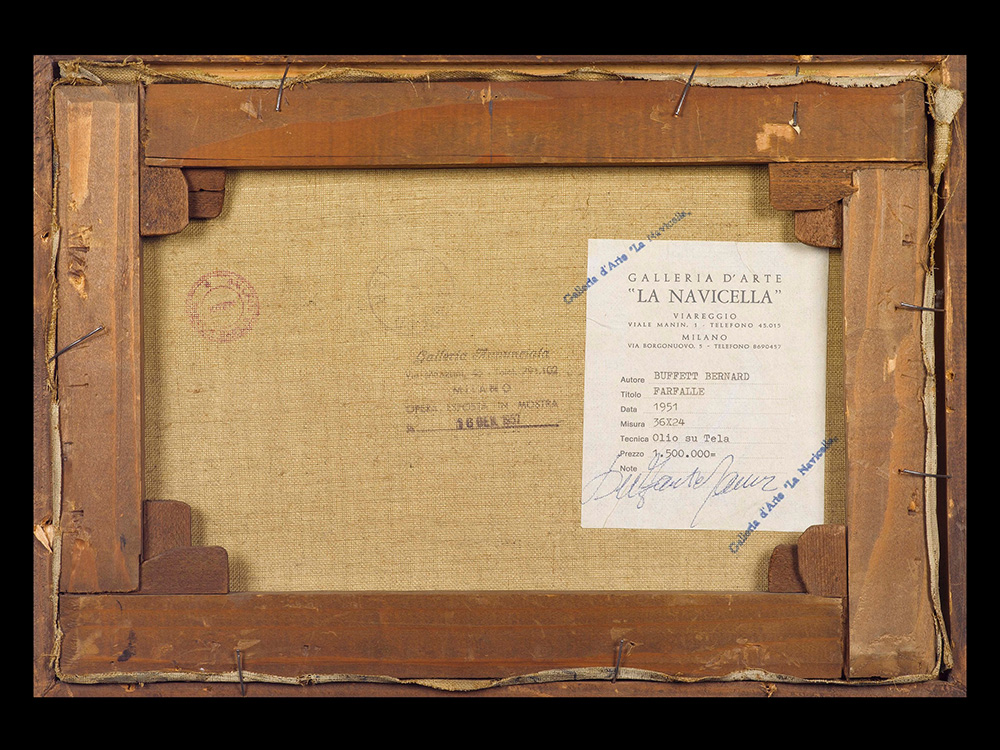 Galleria d'Arte "La Navicella"
GALLERIA D'ARTE
"LA NAVICELLA"
VIAREGGIO
VIALE MANIN, 1 - TELEFONO 45.015
MILANO
VIA BORGONUOVO, 5 - TELEFONO 8690457
Autore BUFFETT BERNARD
Titolo FARFALLE
Data 1951
Misura 36X24
Tecnica Olio su Tela
Prezzo 1.500.000=
Note
Galleria d'Arte "La Navicella"
Galleria Annunciata
MILANO
OPERA ESPOSTA IN MOSTRA
16 GEN. 1957